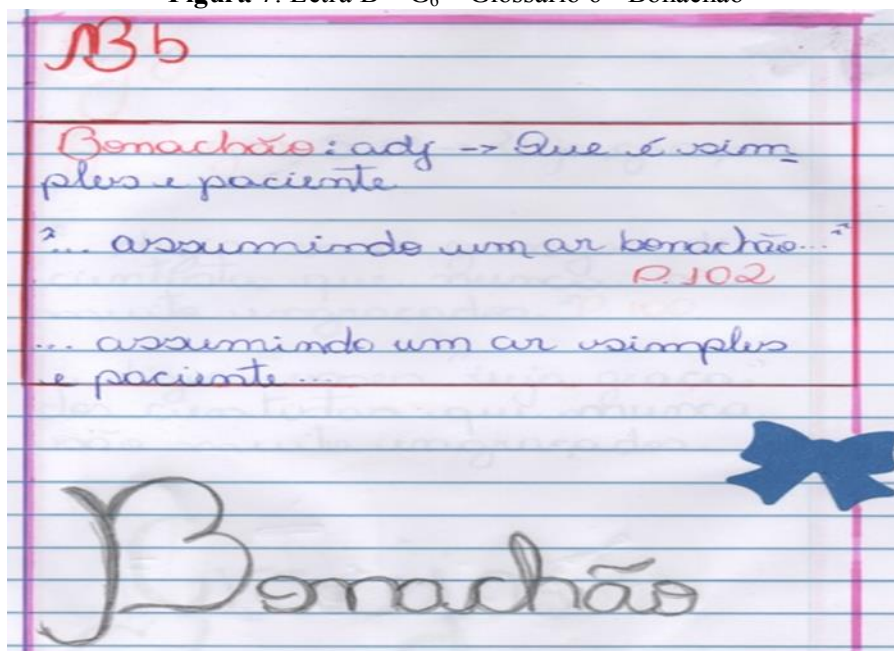 Figura 7: Letra B – G6 – Glossário 6 – Bonachão
B b
Bonachão: adj -> Que é sim
ples e paciente
"... assumindo um ar bonachão..."
P. 102
... assumindo um ar simples
e paciente...
Bonachão